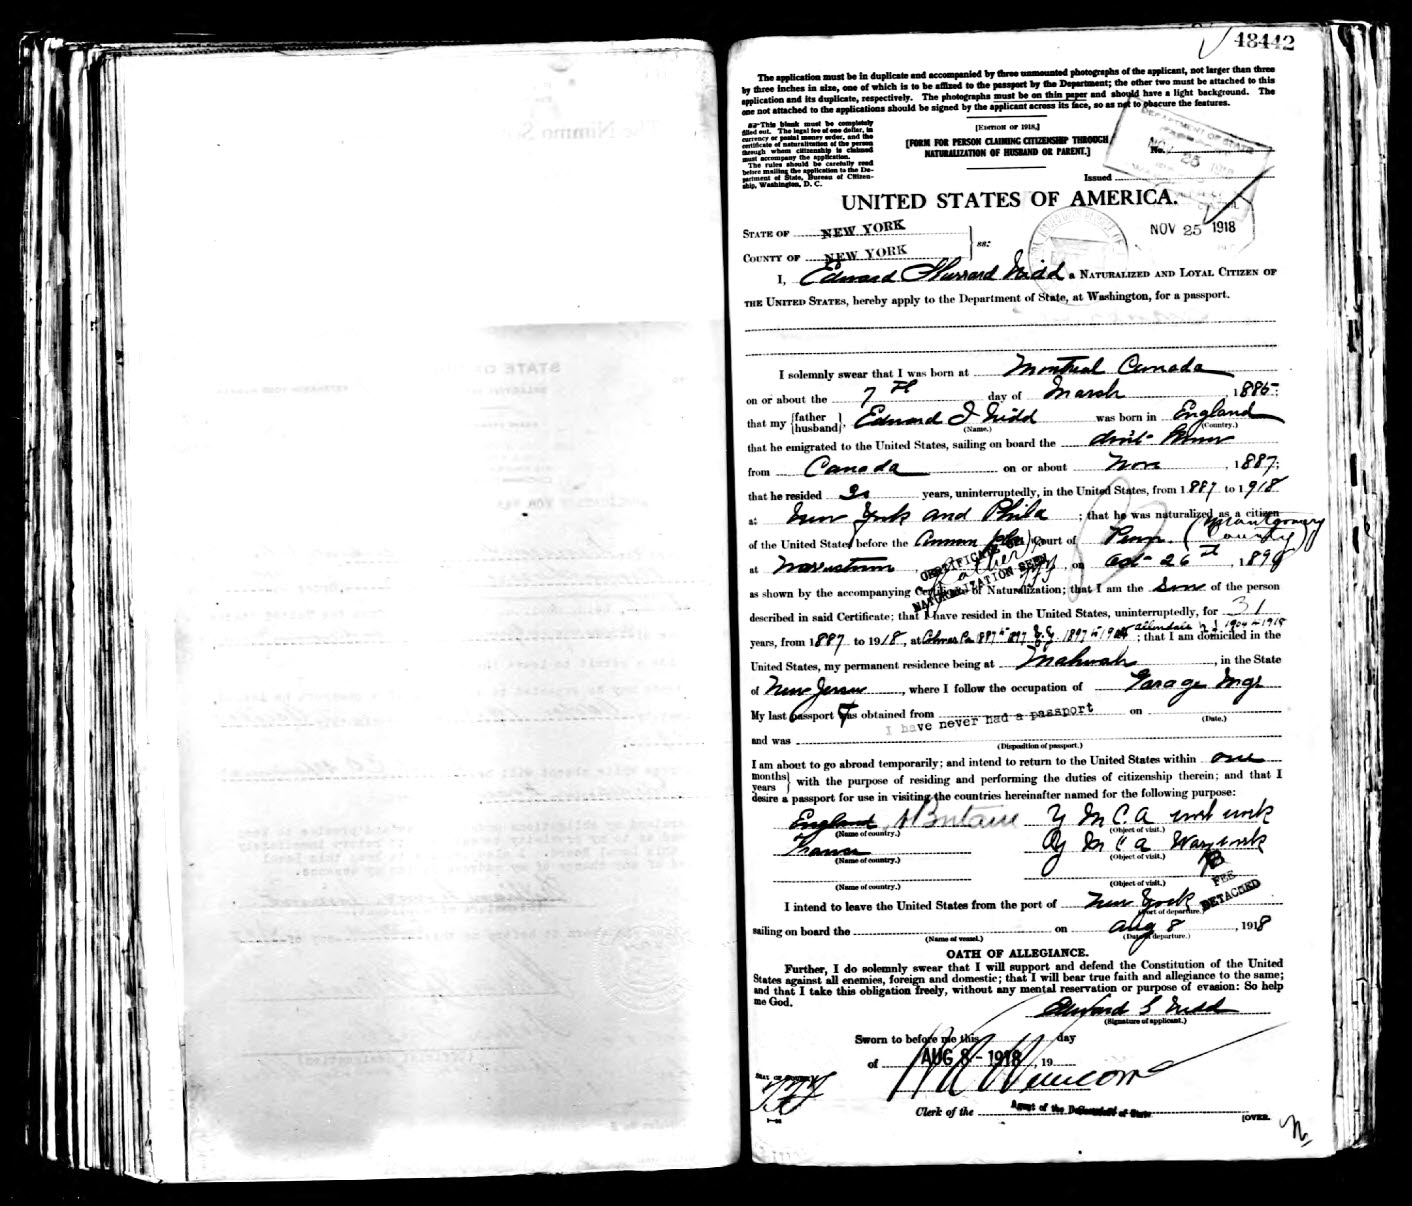 48442
The application must be in duplicate and accompanied by three unmounted photographs of the applicant, not larger than three
by three inches in size, one of which is to be affixed to the passport by the Department; the other two must be attached to this
application and its duplicate, respectively. The photographs must be on thin paper and should have a light background. The
one not attached to the applications should be signed by the applicant across its face, so as not to obscure the features.
This blank must be completely
filled out. The legal fee of one dollar, in
currency or postal money order, and the
certificate of naturalization of the person
through whom citizenship is claimed
must accompany the application.
The rules should be carefully read
before mailing the application to the De-
partment of State, Bureau of Citizen-
ship, Washington, D. C.
[EDITION OF 1918.]
[FORM FOR PERSON CLAIMING CITIZENSHIP THROUGH
NATURALIZATION OF HUSBAND OR PARENT.]
DEPARTMENT OF STATE
NOV 25 1918
No.
Issued
UNITED STATES OF AMERICA.
NOV 25 1918
STATE OF NEW YORK
COUNTY OF NEW YORK
ss:
I, Edward Nidd a NATURALIZED AND LOYAL CITIZEN OF
THE UNITED STATES, hereby apply to the Department of State, at Washington, for a passport.
I solemnly swear that I was born at Montreal Canada
on or about the 7th day of March 1885;
that my {father husband}, Edward J Nidd was born in England
(Name.) (Country.)
that he emigrated to the United States, sailing on board the don't know
from Canada on or about Nov, 1887;
that he resided years, uninterruptedly, in the United States, from 1887 to 1918
at New York and Phila; that he was naturalized as a citizen
of the United States before the Common Pleas Court of Penn. (Montgomery County)
at Norristown, on Oct 26th, 189
CERTIFICATE OF
(Father)
NATURALIZATION SEEN
as shown by the accompanying Certificate of Naturalization; that I am the son of the person
described in said Certificate; that I have resided in the United States, uninterruptedly, for 31
years, from 1887 to 1918, at Pa 1887 to 1897 1897 to Allendale N J 1904 to 1918; that I am domiciled in the
United States, my permanent residence being at Mahwah, in the State
of New Jersey, where I follow the occupation of Garage Mgr
My last passport was obtained from I have never had a passport on
(Date.)
and was
(Disposition of passport.)
I am about to go abroad temporarily; and intend to return to the United States within one
{months years} with the purpose of residing and performing the duties of citizenship therein; and that I
desire a passport for use in visiting the countries hereinafter named for the following purpose:
England Britain Y M C A work
(Name of country.) (Object of visit.)
France Y M C A War work
(Name of country.) (Object of visit.)
(Name of country.) (Object of visit.)
FEE
DETACHED
I intend to leave the United States from the port of New York
(Port of departure.)
sailing on board the on Aug 8, 1918
(Name of vessel.) (Date of departure.)
OATH OF ALLEGIANCE.
Further, I do solemnly swear that I will support and defend the Constitution of the United
States against all enemies, foreign and domestic; that I will bear true faith and allegiance to the same;
and that I take this obligation freely, without any mental reservation or purpose of evasion: So help
me God.
Edward S Nidd
(Signature of applicant.)
Sworn to before me this day
of AUG 8 - 1918, 19
Clerk of the Agent of the Department of State
[OVER.